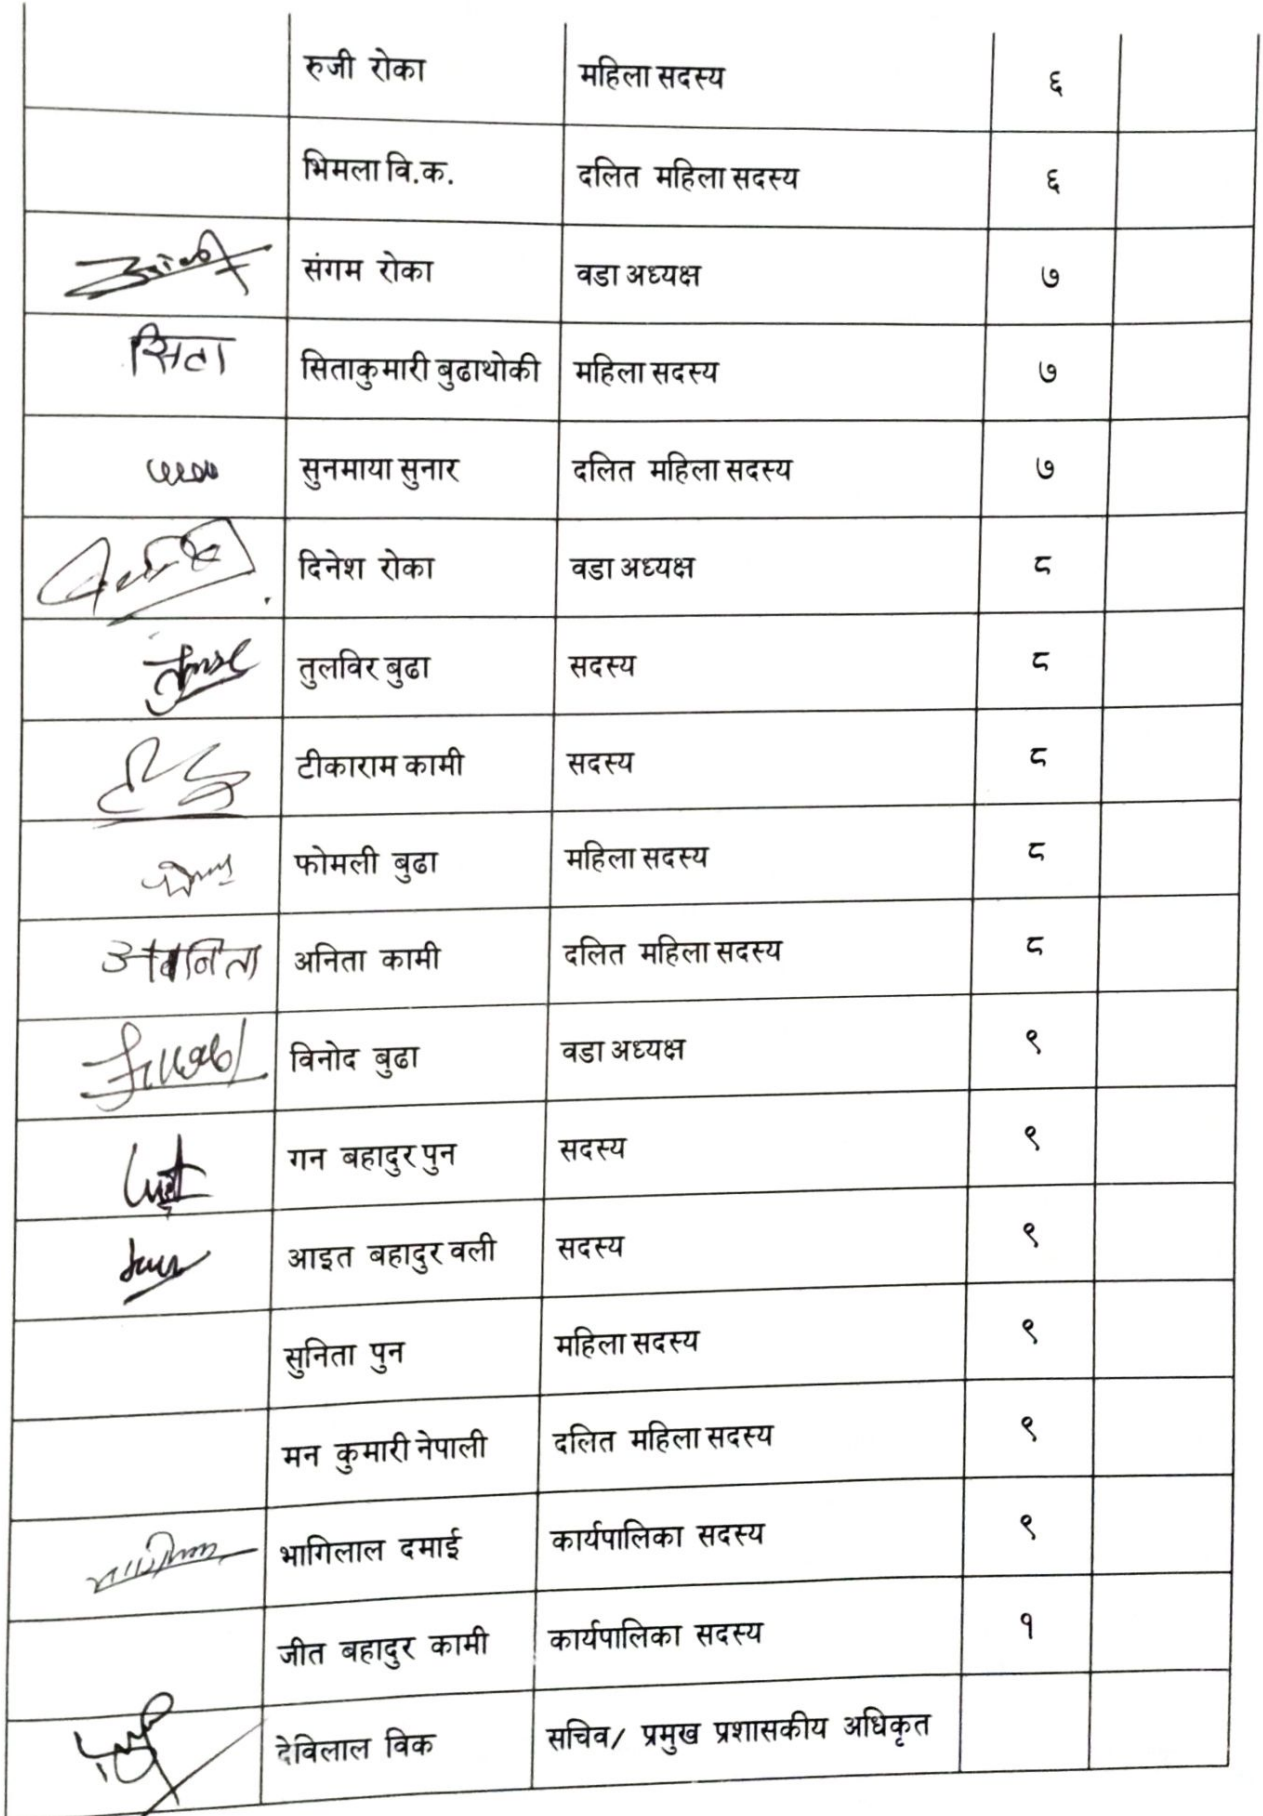 रुजी रोका महिला सदस्य ६
भिमला वि.क. दलित महिला सदस्य ६
संगम रोका वडा अध्यक्ष ७
सिता सिताकुमारी बुढाथोकी महिला सदस्य ७
सुनमाया सुनार दलित महिला सदस्य ७
दिनेश रोका वडा अध्यक्ष ८
तुलविर बुढा सदस्य ८
टीकाराम कामी सदस्य ८
फोमली बुढा महिला सदस्य ८
अनिता कामी दलित महिला सदस्य ८
विनोद बुढा वडा अध्यक्ष ९
गन बहादुर पुन सदस्य ९
आइत बहादुर वली सदस्य ९
सुनिता पुन महिला सदस्य ९
मन कुमारी नेपाली दलित महिला सदस्य ९
भागिलाल दमाई कार्यपालिका सदस्य ९
जीत बहादुर कामी कार्यपालिका सदस्य १
देविलाल विक सचिव/ प्रमुख प्रशासकीय अधिकृत